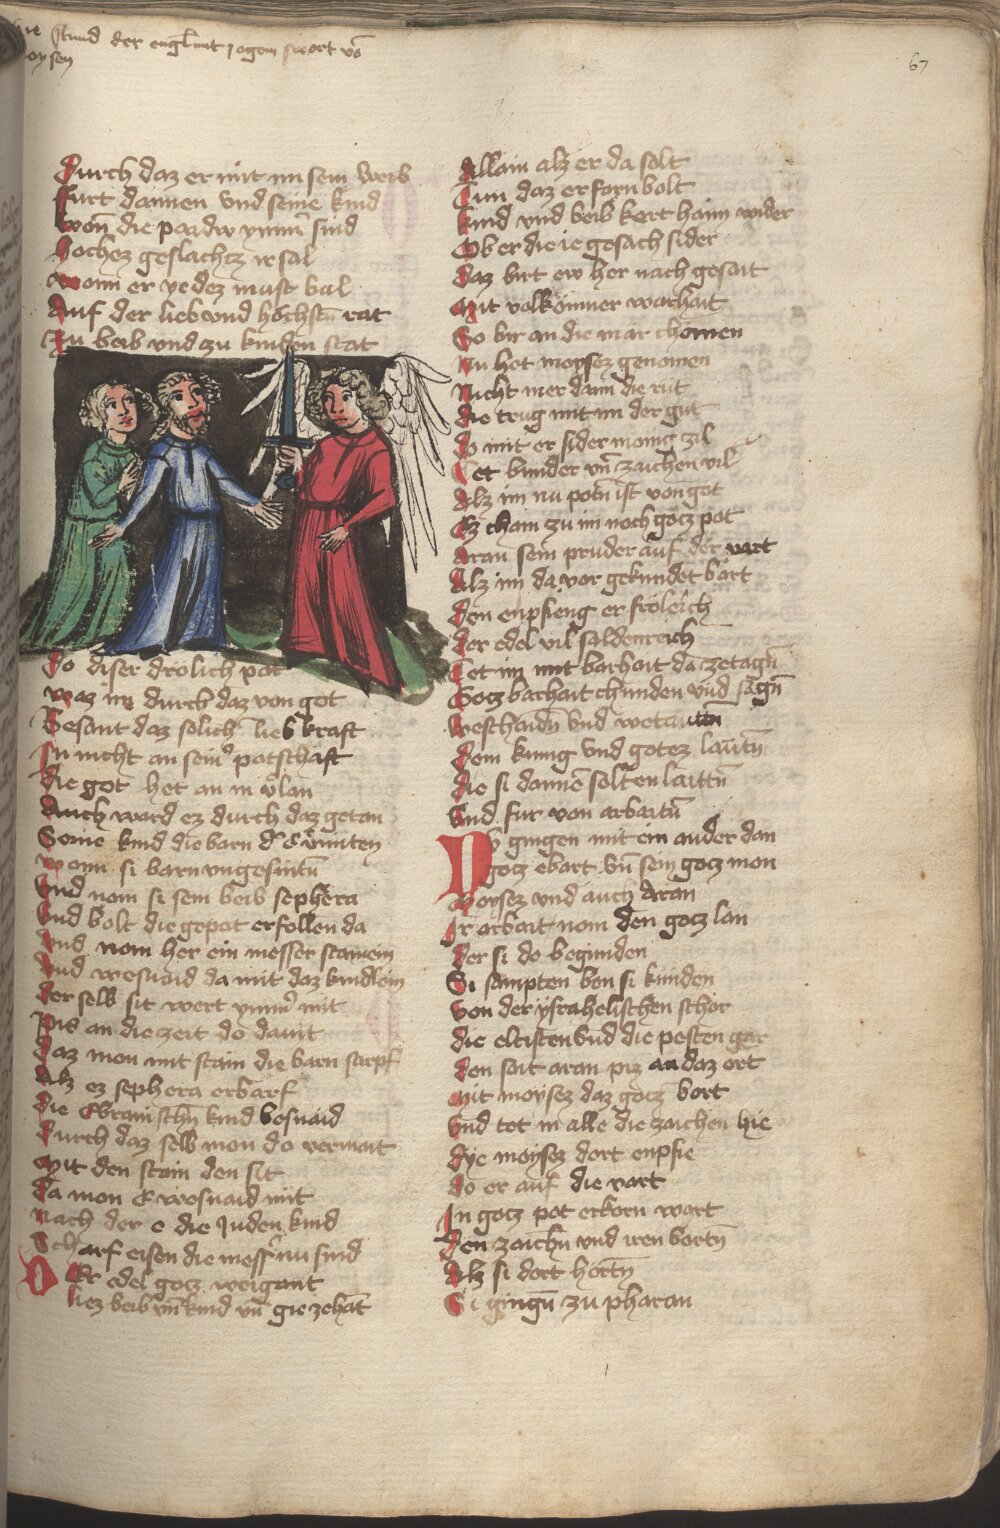 stund der engl mit zogem swort vor
oysen
67
Durch daz er mit im sein weib
Furt dannen vnd seine kind
Won die paidiv ymm̄ sind
Hochez geslachtz ir sal
Wann er ye dez must bal
Auf der lieb vnd hochstn̄ rat
Zu beib vnd zu kinden stat
Do diser drolich pot
Waz im durch daz von got
Gesant daz solich lieb kraft
In nicht an seinr̄ potschaft
Die got het an in vlan
Auch ward ez durch daz getan
Seine kind die barn vmsniten
Wann si barn vngesnitn̄
Vnd nom si sein beib sephera
Vnd bolt die gepot erfollen da
Vnd nom her ein messer stainein
Vnd wesnaid da mit daz kindlein
Der selb sit wert ymmr̄ mit
Pis an die zeit do dauit
Daz mon mit stain die barn scarpf
Alz ez sephera erbarf
Die Ebraischn̄ kind besnaid
Durch daz selb mon do vermait
Mit den stain den sit
Da mon e wesnaid mit
Nach der e die Juden kind
Scharf eisen die messr̄ nu sind
Der edel gotz weigant
liez beib vn̄ kind vn̄ gie zehāt
Allain alz er da solt
Tun daz er farn bolt
Kind vnd beib kert haim wider
Ob er die ie gesach sider
Daz birt ew her nach gesait
Mit volkomner warhait
So bir an die mar chomen
Nu het moysez genomen
Nicht mer dann die rut
Die trug mit im der gut
Do mit er sider manig zil
Tet bunder vn̄ zaichen vil
Alz im nu potn̄ ist von got
Ez cham zu im noch gotz pot
Aran sein pruder auf der vart
Alz im da vor gekundet bart
Den enpfieng er froleich
Der edel vil saldenreich
Tet im mit barhait da zetagn̄
Gotz barhait chunden vnd sagn̄
Weschaidn̄ vnd wetautn̄
Dem kunig vnd gotez lautn̄
Die si dannē solten laittn̄
Vnd fur von arbaitn̄
Dy gingen mit ein ander dan
gotz ebart vn̄ sein gotz mon
Moysez vnd auch Aran
Ir arbait nom den gotz lan
Der si do begunden
Si sampten ben si kunden
Von der ysrahelischen schar
Die eltisten vnd die pesten gar
Den sait aran piz an daz ort
Mit moysez daz gotz bort
Vnd tet in alle die zaichen hie
Dye moysez dort enpfie
Do er auf die vart
In gotz pot erkorn wart
Den zaichn̄ vnd iren bortn̄
Alz si dort hortn̄
Si gingn̄ zu pharan